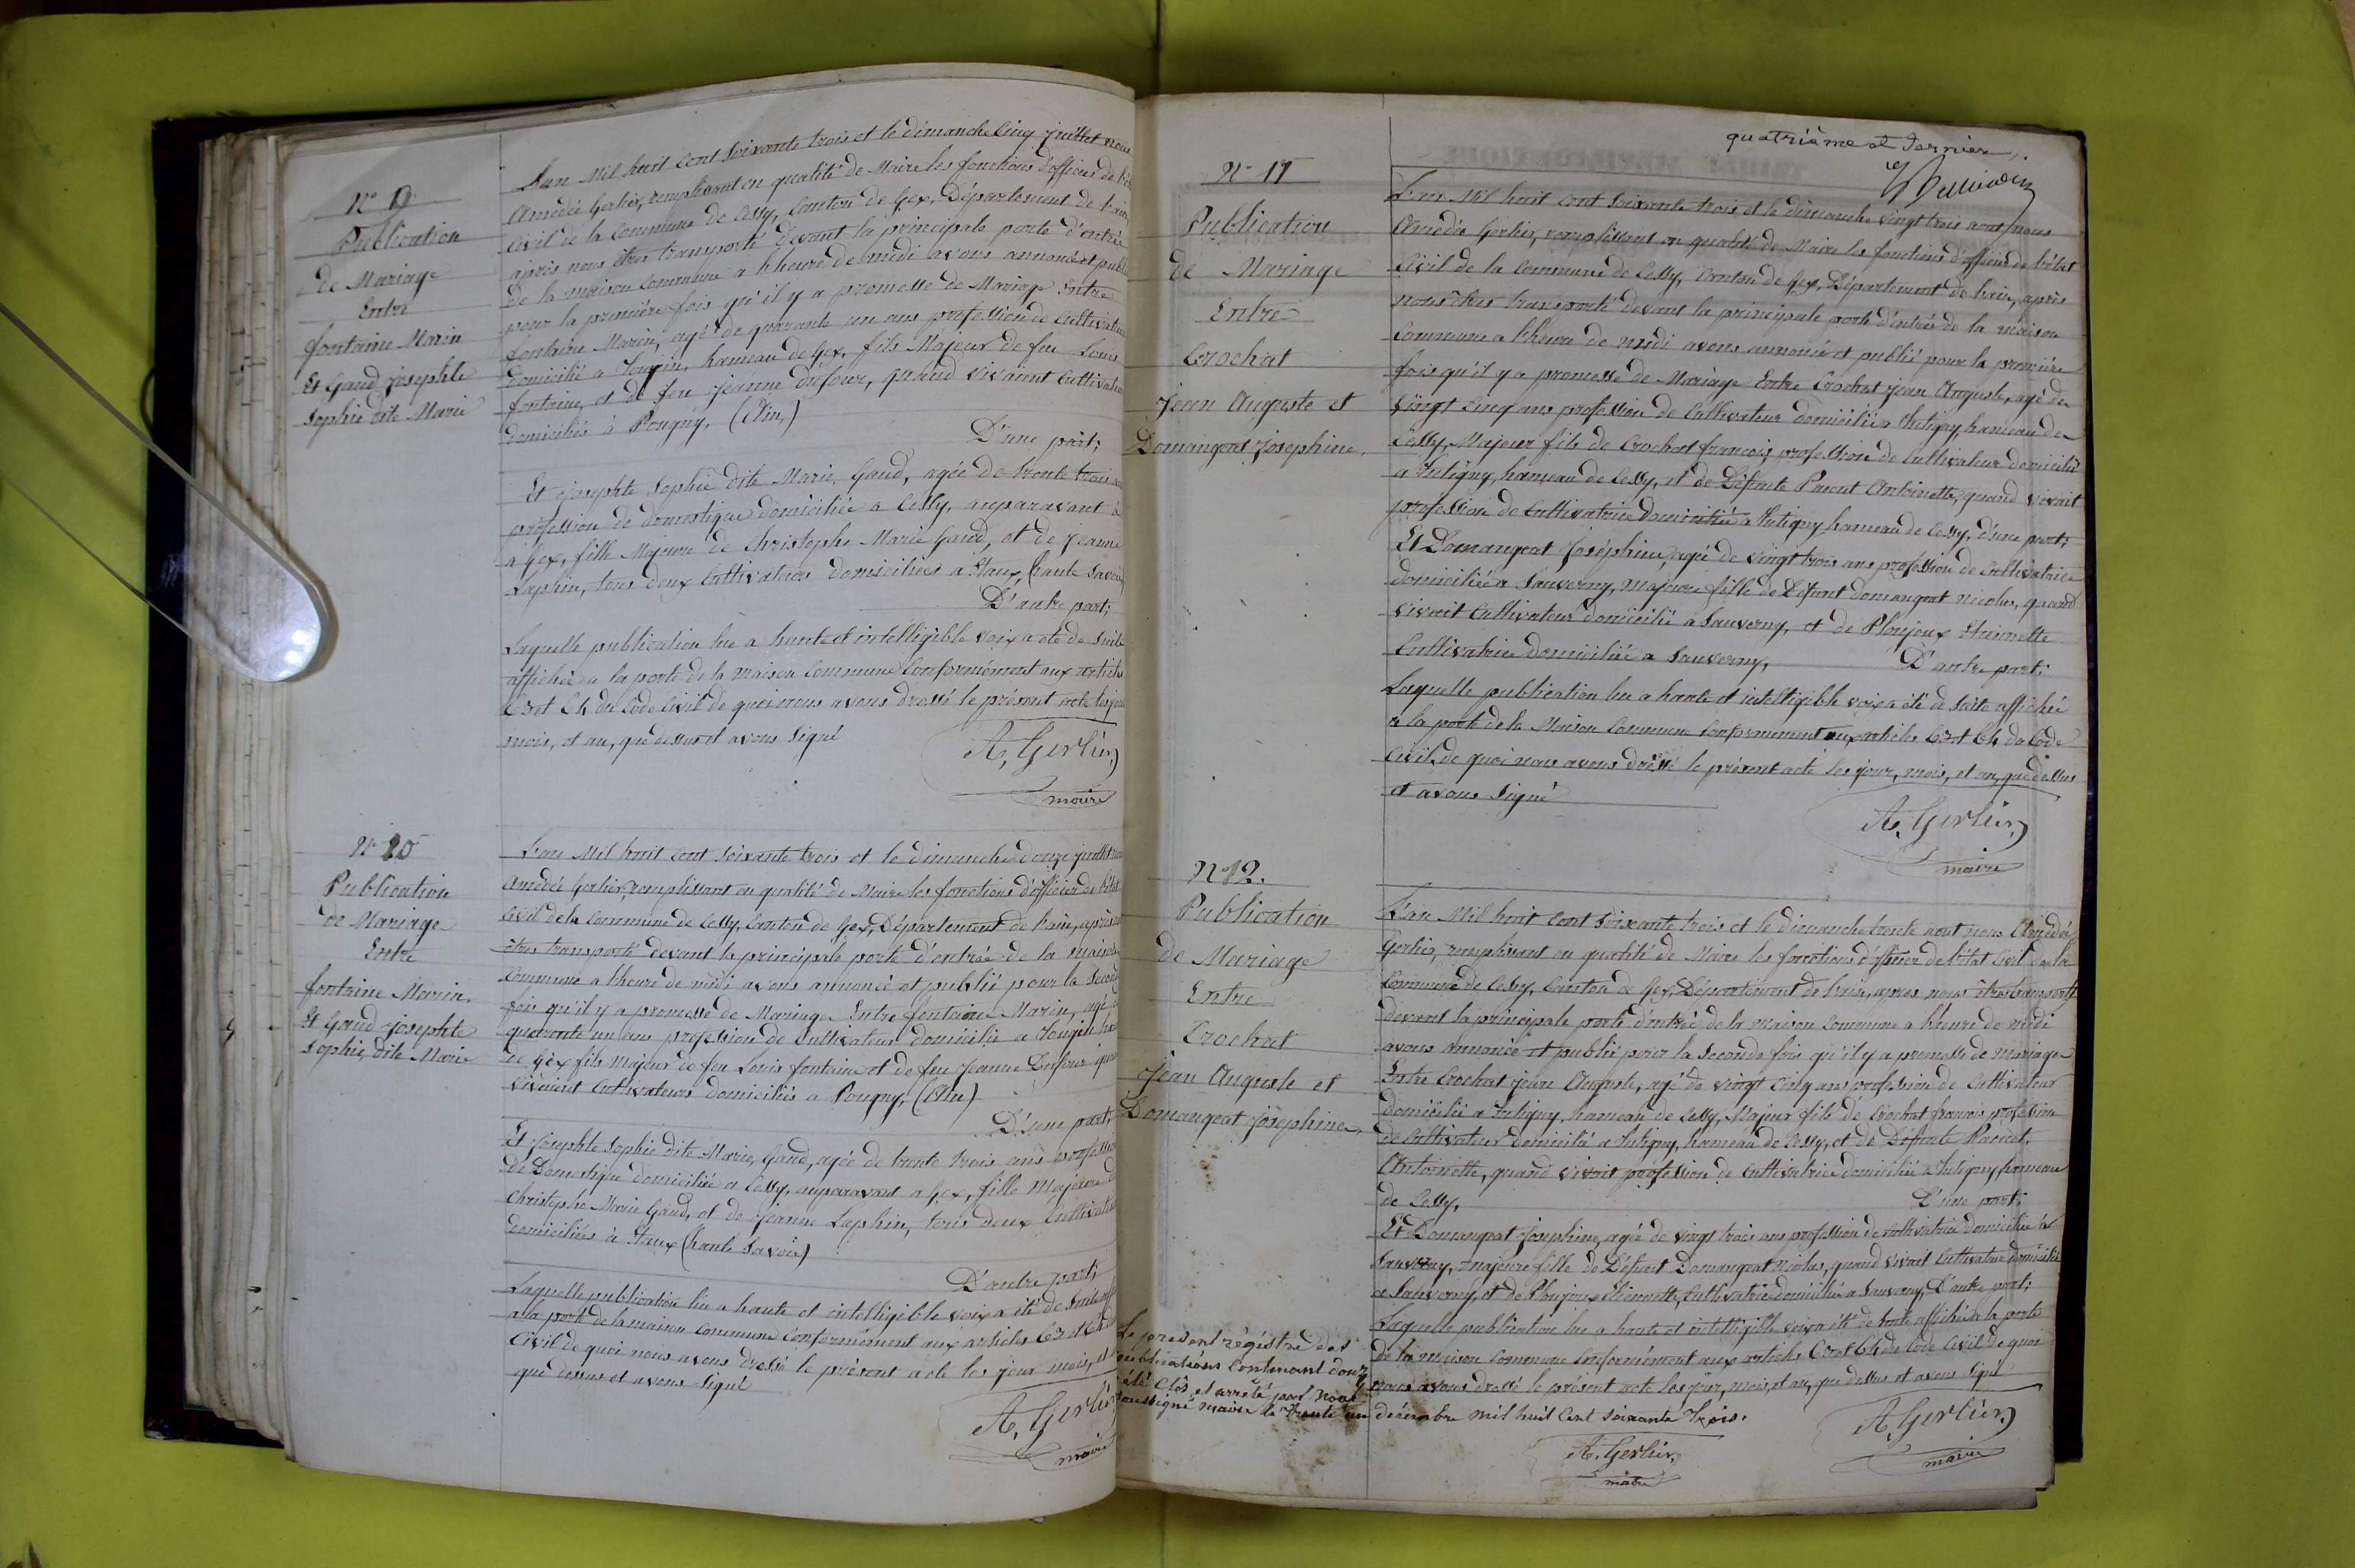 Publication
de Mariage
Entre
fontaine Marin
Et Gaud josephte
Sophie dite Marie
L'an Mil huit cent Soixante trois et le dimanche cinq juillet nous
Amédée Gerlier, remplissant en qualité de Maire les fonctions d'officier de
Civil de la Commune de Cessy, Canton de Gex, Département de
après nous être transporté devant la principale porte d'entrée
de la maison Commune a l'heure de midi avons annoncé et publié
pour la première fois qu'il y a promesse de Mariage Entre
fontaine Marin, agé de quarante un ans profession de Cultivateur
domicilié a Tougin, hameau de Gex, fils Majeur de feu Louis
fontaine, et de feu jeanne Dufour, quand vivaient Cultivateurs
domiciliés à Pougny, (Ain,)
D'une part;
Et josephte Sophie dite Marie, Gaud, agée de trente trois
profession de domestique domiciliée a Cessy, auparavant
a Gex, fille Majeure de Christophe Marie Gaud, et de jeanne
Laphin, tous deux Cultivateurs domiciliés a (haute Savoie
D'autre part;
Laquelle publication lue a haute et intelligible voix a été de Suite
affichée a la porte de la maison Commune Conformément aux articles
63 et 64 du Code Civil de quoi nous avons dressé le présent acte les jour
mois, et an, que dessus et avons Signé
A, Gerlier,
maire
N° 10
Publication
de Mariage
Entre
fontaine Marin.
Et Gaud josephte
Sophie, dite Marie
L'an Mil huit cent Soixante trois et le dimanche douze juillet
Amédée Gerlier, remplissant en qualité de Maire les fonctions d'officier de l'état
Civil de la Commune de Cessy, Canton de Gex, Département de l'ain, après
être transporté devant la principale porte d'entrée de la maison
Commune a l'heure de midi avons annoncé et publié pour la Second
fois qu'il y a promesse de Mariage Entre fontaine Marin, agé
quarante un ans profession de Cultivateur domicilié a Tougin
de Gex fils Majeur de feu Louis fontaine et de feu jeanne Dufour
vivaient Cultivateurs domiciliés a Pougny, (Ain)
D'une part;
Et josephte Sophie dite Marie, Gaud, agée de trente trois ans profession
de Domestique domiciliée a Cessy, auparavant a Gex, fille Majeure
Christophe Marie Gaud, et de jeanne Laphin, tous deux Cultivateurs
domiciliés à (haute Savoie)
D'autre part;
Laquelle publication lue a haute et intelligible voix a été de Suite
a la porte de la maison Commune Conformément aux articles 63 et 64
Civil de quoi nous avons dressé le présent acte les jour mois, et
que dessus et avons Signé
A, Gerlier
maire
quatrième et dernier,.
N° 11
Publication
de Mariage
Entre
Crochat
Jean Auguste et
Domangeat josephine.
L'an Mil huit cent Soixante trois et le dimanche vingt trois aout nous
Amédée Gerlier, remplissant en qualité de Maire les fonctions d'officier de l'état
Civil de la Commune de Cessy, Canton de Gex, Département de l'ain, après
nous être transporté devant la principale porte d'entrée de la maison
Commune a l'heure de midi avons annoncé et publié pour la première
fois qu'il y a promesse de Mariage Entre Crochat jean Auguste, agé de
vingt cinq ans profession de Cultivateur domicilié a hameau de
Cessy, Majeur fils de Crochat francois profession de Cultivateur domicilié
a hameau de Cessy, et de Défunte Antoinette, quand vivait
profession de Cultivatrice Domiciliée a hameau de Cessy, d'une part;
Et Domangeat Joséphine, agée de vingt trois ans profession de Cultivatrice
domiciliée a Sauverny, majeure fille de Défunt domangeat nicolas, quand
vivait Cultivateur domicilié a Sauverny, et de Ploujoux Etiennette
Cultivatrice domiciliée a Sauverny, D'autre part;
Laquelle publication lue a haute et intelligible voix a été de Suite affichée
a la porte de la Maison Commune Conformément aux articles 63 et 64 du Code
Civil, de quoi nous avons dressé le présent acte les jour, mois, et an, que dessus
et avons Signé
A, Gerlier,
maire
N° 12.
Publication
de Mariage
Entre
Crochat
Jean Auguste et
Domangeat josephine,
L'an Mil huit cent Soixante trois et le dimanche trente aout nous Amédée
Gerlier, remplissant en qualité de Maire les fonctions d'officier de l'état Civil de la
Commune de Cessy, Canton de Gex, Département de l'ain, apres nous être transporté
devant la principale porte d'entrée de la maison Commune a l'heure de midi
avons annoncé et publié pour la Seconde fois qu'il y a promesse de mariage
Entre Crochat jean Auguste, agé de vingt cinq ans profession de Cultivateur
domicilié a hameau de Cessy, Majeur fils de Crochat francois profession
de Cultivateur domicilié a hameau de Cessy, et de Défunte
Antoinette, quand vivait profession de Cultivatrice domiciliée a hameau
de Cessy, D'une part;
Et Domangeat Josephine, agée de vingt trois ans profession de cultivatrice domiciliée a
Sauverny, majeure fille de Défunt Domangeat nicolas, quand vivait Cultivateur domicilié
a Sauverny, et de Ploujoux Etiennette, Cultivatrice domiciliée a Sauverny, D'autre part;
Laquelle publication lue a haute et intelligible voix a été de Suite affichée a la porte
de la maison Commune Conformément aux articles 63 et 64 du Code Civil de quoi
nous avons dressé le présent acte les jour, mois, et an, que dessus et avons Signé
A, Gerlier,
maire
Le présent régistre des
publications Contenant douze
été Clos et arrêté par nous
soussigné maire le Trente un décembre mil huit Cent soixante Trois.
A. Gerlier,
maire